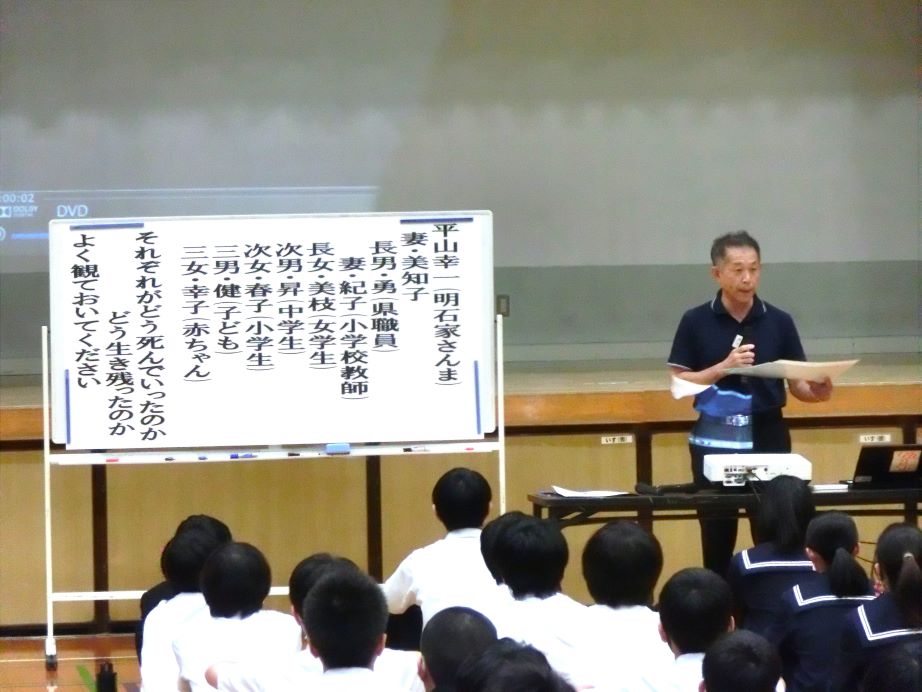 平山幸一(明石家さんま)
妻・美知子
長男・勇(県職員)
妻・紀子(小学校教師)
長女・美枝(女学生)
次男・昇(中学生)
次女・春子(小学生)
三男・健(子ども)
三女・幸子(赤ちゃん)
それぞれがどう死んでいったのか
どう生き残ったのか
よく観ておいてください
:00:02
DOLBY
DVD